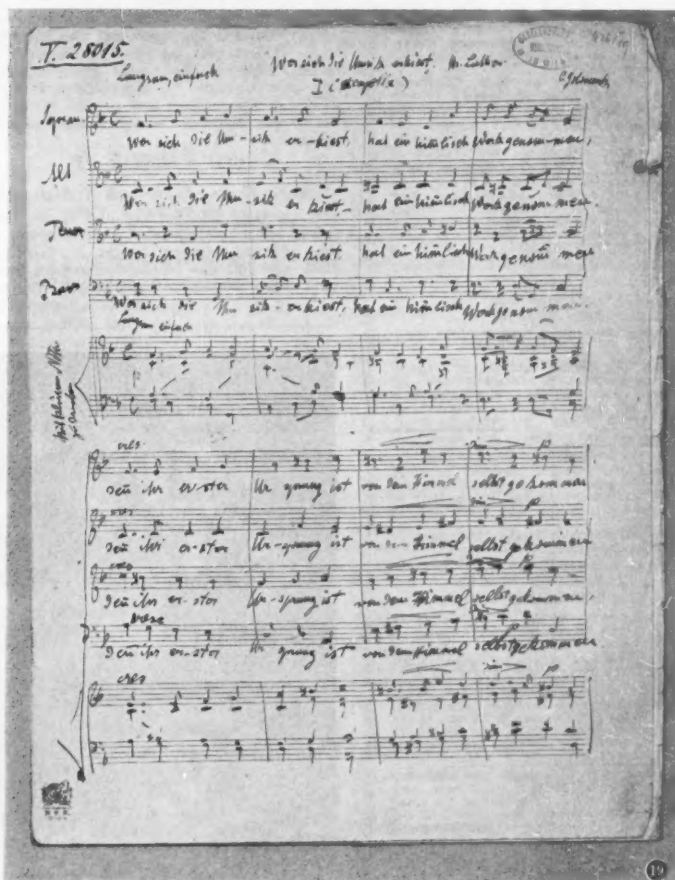 V. 28015.
Wer sich die Musik erkiest. M. Luther
Langsam, einfach
I (a capella)
Sopran
Wer sich die Mu-sik er-kiest, hat ein himlisch Werk genom-men,
Alt
Wer sich die Mu-sik er kiest, hat ein himlisch Werk genom men
Tenor
Wer sich die Mu sik er kiest hat ein himlisch Werk genom̄ men
Bass
Wer sich die Mu sik er-kiest, hat ein himlisch Werk genom men.
Langsam einfach
p
cres
den̄ ihr er-ster Ur sprung ist von dem Himmel selbst gekommen
cres
den̄ ihr er-ster Ur-sprung ist von dem Himmel selbst gekommen
cres
den̄ ihr er-ster Ur-sprung ist von dem Himmel selbst gekommen,
cresc
den̄ ihr er-ster Ur sprung ist von dem Himmel selbst gekommen
cres
dim p
19